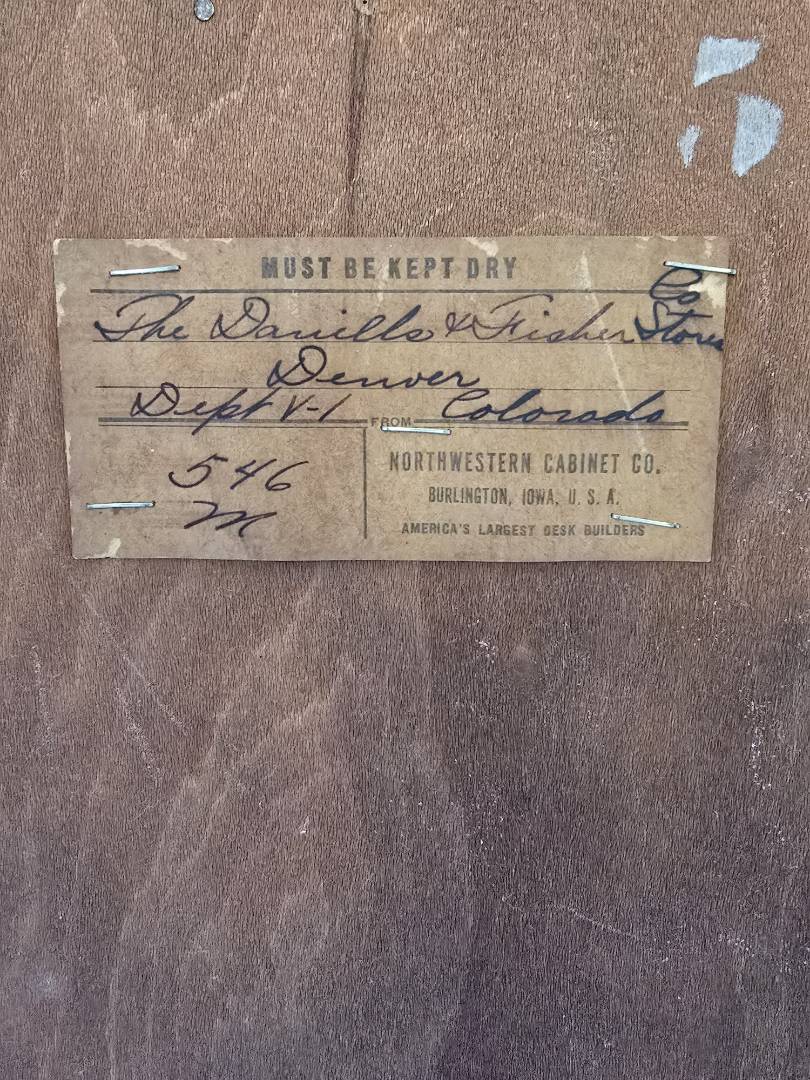 MUST BE KEPT DRY
The Daniells & Fisher Stores Co
Denver
Dept V-1 Colorado
FROM
546
M
NORTHWESTERN CABINET CO.
BURLINGTON, IOWA, U. S. A.
AMERICA'S LARGEST DESK BUILDERS